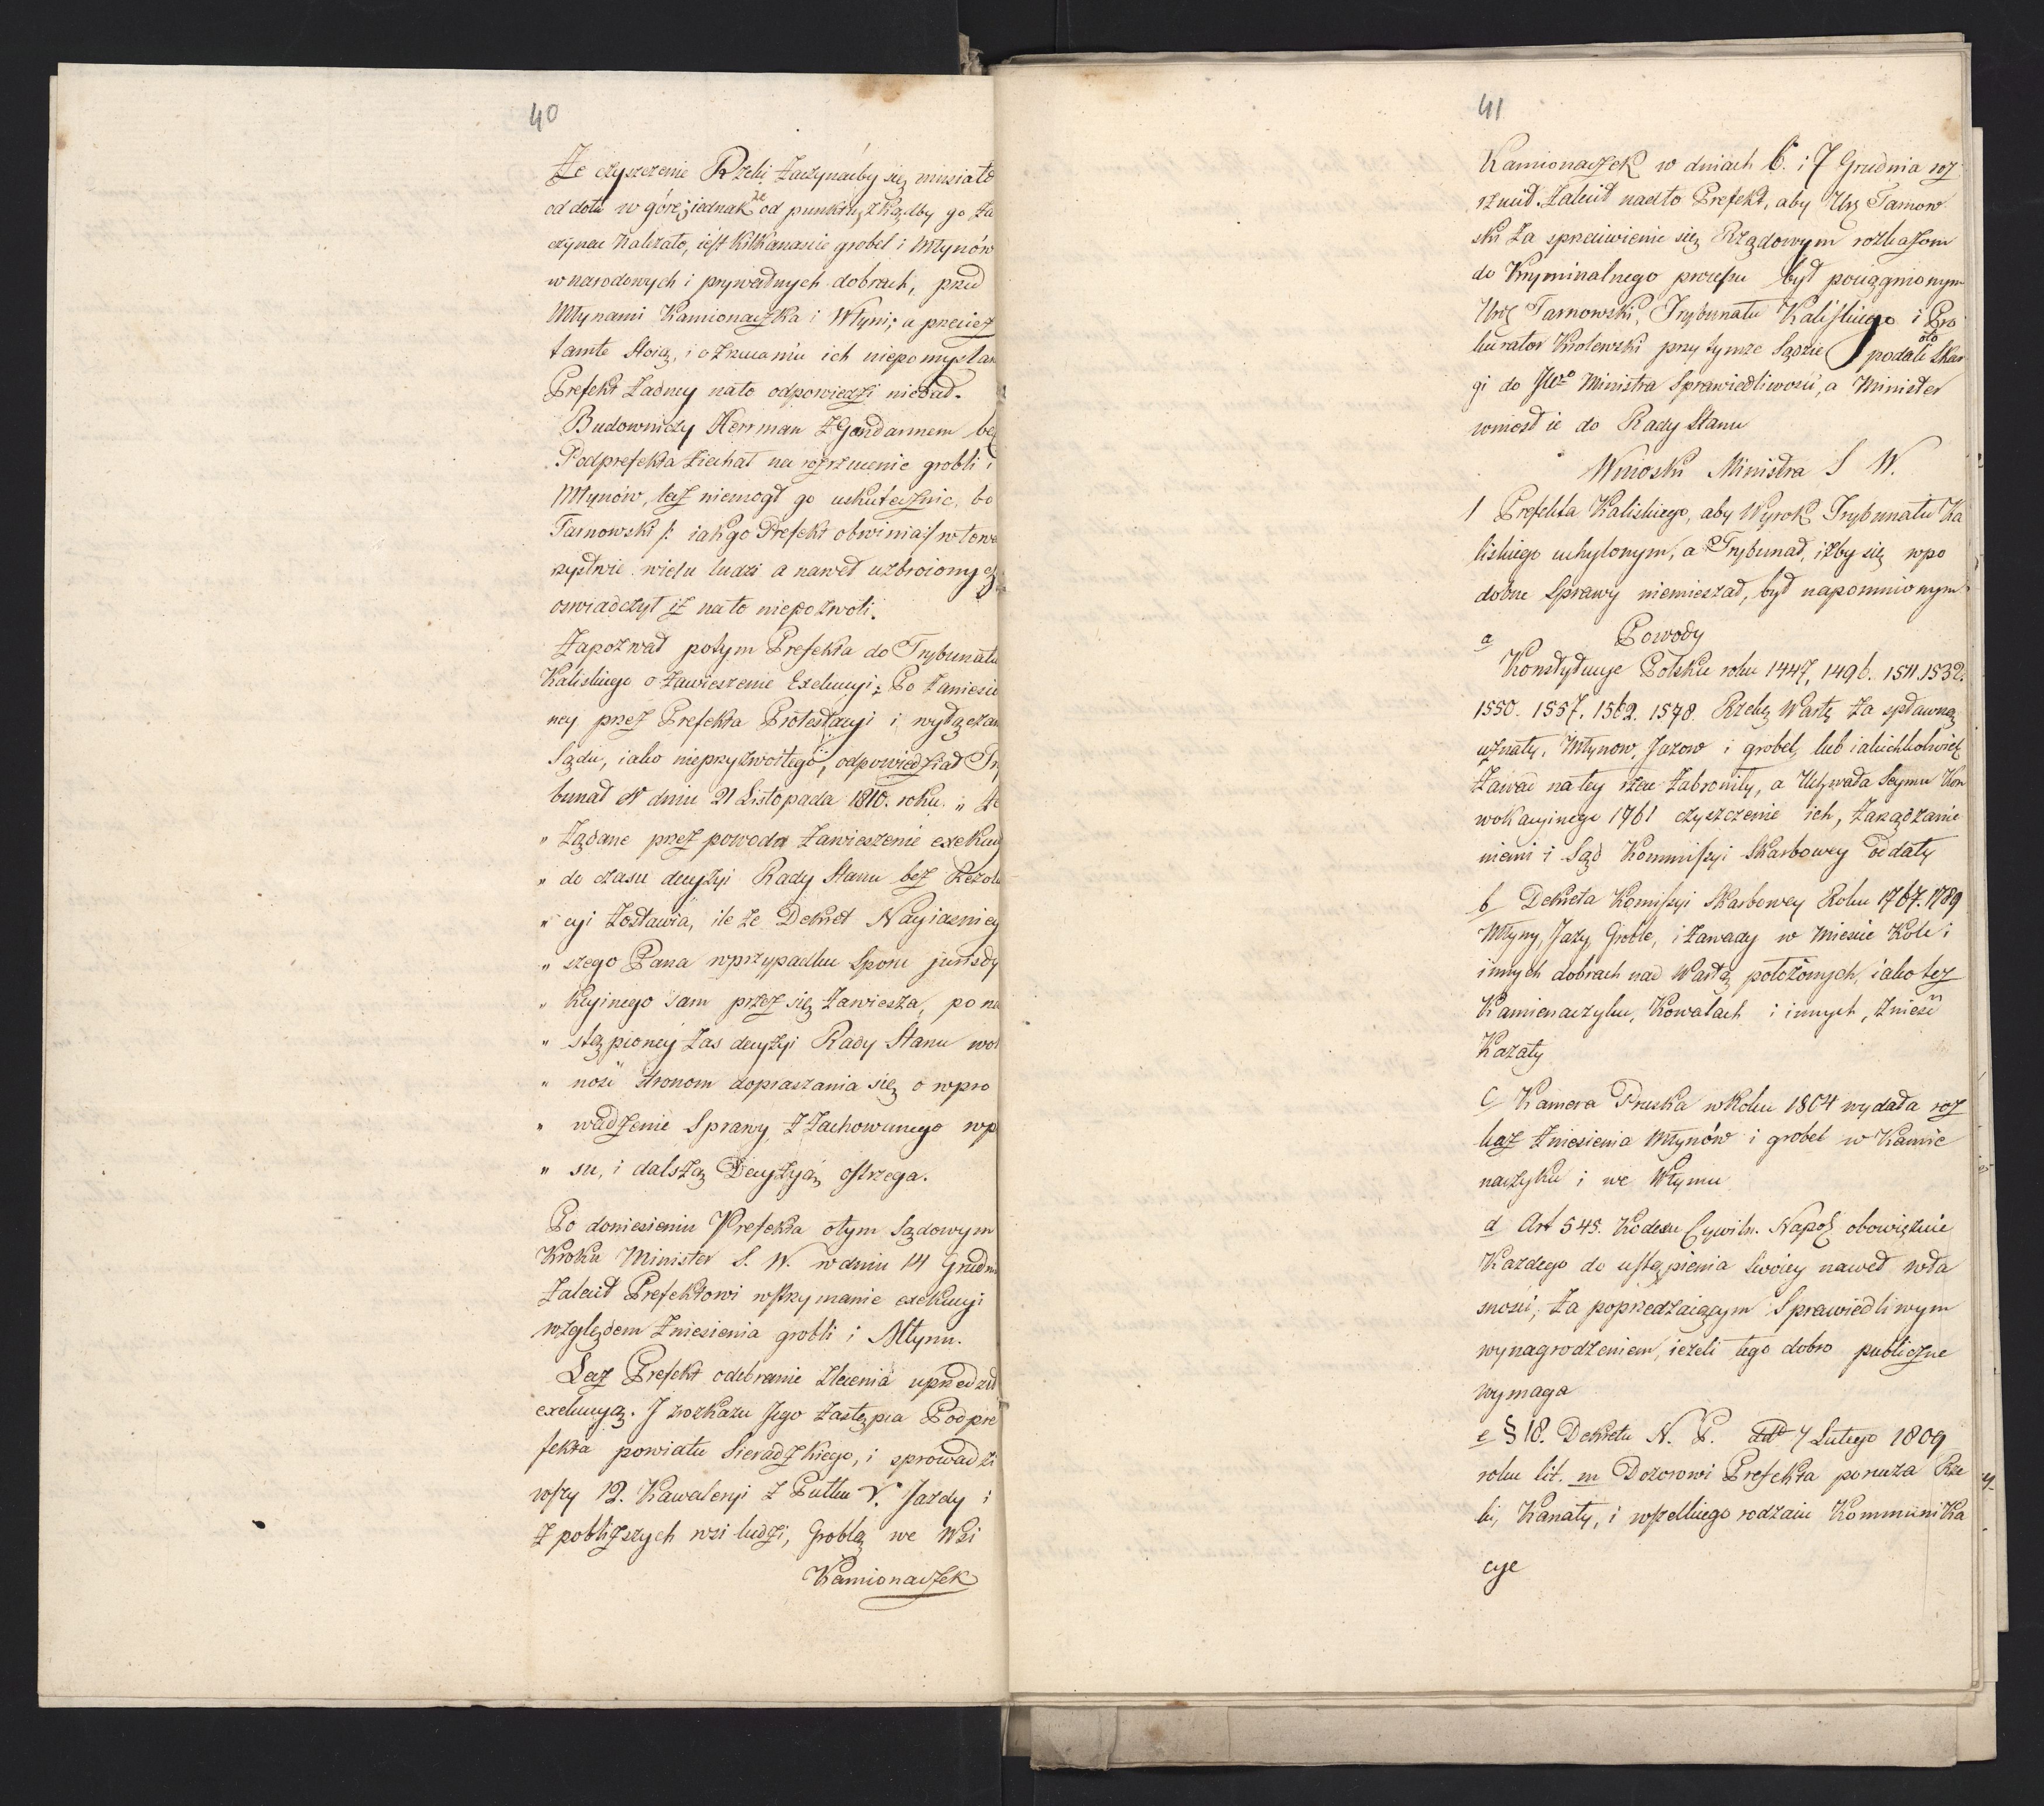 40
Że czyszczenie Rzeki Zaczynaćby się musiało
od dołu w górę; iednak że od punktu, zkądby go Za
czynać Należało, iest kilkanascie grobel i Młynów
w narodowych i prywatnych dobrach, przed
Młynami Kamionaczka i Włyni; a przecież
tamte Stoią, i o Zrzucaniu ich niepomyslan
Prefekt Żadney nato odpowiedzi niedał.
Budowniczy Herrman z Gandarmem bez
Podprefekta Ziechał na rozrzucenie grobli i
Młynów, lecz niemogł go uskutecznić, bo
Tarnowski /: iak go Prefekt obwinia :/ w towa
rzystwie wielu ludzi a nawet uzbroionych
oswiadczył iż nato niepozwoli.
Zapozwał potym Prefekta do Trybunału
Kaliskiego o Zawieszenie Exekucyi; Po Zaniesio
ney przez Prefekta Protestacyi i wyłączan
Sądu, iako nieprzyzwoitego, odpowiedział Try
bunał W dniu 21 Listopada 1810. roku. „ Że
„ Żądane przez powoda Zawieszenie exekucy
„ do czasu decyzyi Rady Stanu bez Rezolu
„ cyi Zostawia, ile że Dekret Nayiasniey
„ szego Pana w przypadku Sporu jurisdy
„ kcyinego sam przez się Zawiesza, po na
„ stąpioney Zas decyzyi Rady Stanu wol
„ ność stronom dopraszania się o wpro
„ wadzenie Sprawy z Zachowanego wpi
„ su, i dalszą Decyzyą ostrzega.
Po doniesieniu Prefekta o tym Sądowym
Kroku Minister S. W. w dniu 14 Grudnia
Zalecił Prefektowi wstrzymanie exekucyi
względem Zniesienia grobli i Młynu.
Lecz Prefekt odebranie zlecenia uprzedził
exekucyą. J z rozkazu Jego Zastępca Podpre
fekta powiatu Sieradzkiego, i sprowadzi
wszy 12. Kawaleryi z Pułku V. Jazdy i
z pobliższych wsi ludzi, Groblą we Wsi
Kamionaczek
41
Kamionaczek w dniach 6. i 7 Grudnia roz
rzucił. Zalecił nadto Prefekt, aby Ur: Tarnow
ski Za sprzeciwienie się Rządowym rozkazom
do Kryminalnego procesu był pociągnionym
Ur: Tarnowski, Trybunału Kaliskiego i Pro
kurator Krolewski przy tymże Sądzie oto podali Skar
gi do JW° Ministra Sprawiedliwosci, a Minister
wniosł ie do Rady Stanu
Wnoski Ministra S W.
1 Prefekta Kaliskiego, aby Wyrok Trybunału Ka
liskiego uchylonym, a Trybunał, iżby się wpo
dobne Sprawy niemieszał, był napomnionym
Powody
a Konstytucye Polskie roku 1447, 1496. 1511. 1532.
1550. 1557. 1562. 1578. Rzekę Wartę Za spławną
uznały, Młynow, Jazow i grobel, lub iakichkolwiek
Zawad na tey rzece Zabroniły, a Uchwała Seymu Kon
wokacyinego 1761 czyszczenie ich, Zarządzanie
niemi i Sąd Kommissyi Skarbowey oddały
b Dekreta Komissyi Skarbowey Roku 1767. 1789
Młyny, Jazy, Groble, i Zawady w Miescie Kole i
innych dobrach nad Wartą położonych, iako też
Kamienaczyku, Kowalach i innych, Znieść
Kazały
c Kamera Pruska w Roku 1804 wydała roz
kaz Zniesienia Młynów i grobel w Kamie
naczyku i we Włyniu
d Art 545. Kodexu Cywiln. Napol: obowięzuie
Każdego do ustąpienia Swoiey nawet wła
sności, Za poprzedzaiącym Sprawiedliwym
wynagrodzeniem, ieżeli tego dobro publiczne
wymaga
e § 18. Dekretu N. P. 7 Lutego 1809
roku lit. m Dozorowi Prefekta porucza Rze
ki, Kanały, i wszelkiego rodzaiu Kommunika
cye